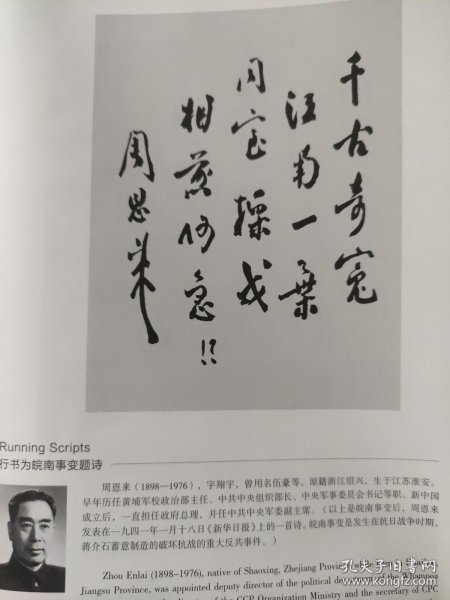 千古奇冤
江南一葉
同室操戈
相煎何急!?
周恩来
Running Scripts
行书为皖南事变题诗
周恩来（1898—1976），字翔宇，曾用名伍豪等。原籍浙江绍兴、生于江苏淮安。
早年历任黄埔军校政治部主任，中共中央组织部长、中央军事委员会书记等职。新中国
成立后，一直担任政府总理，并任中共中央军委副主席。（以上是皖南事变后，周恩来
发表在一九四一年一月十八日《新华日报》上的一首诗。皖南事变是发生在抗日战争时期，
蒋介石蓄意制造的破坏抗战的重大反共事件。）
Zhou Enlai (1898-1976), native of Shaoxing, Zhejiang Province,
Jiangsu Province, was appointed deputy director of the political of the
of the CCP Organization Ministry and the secretary of CPC
孔夫子旧书网